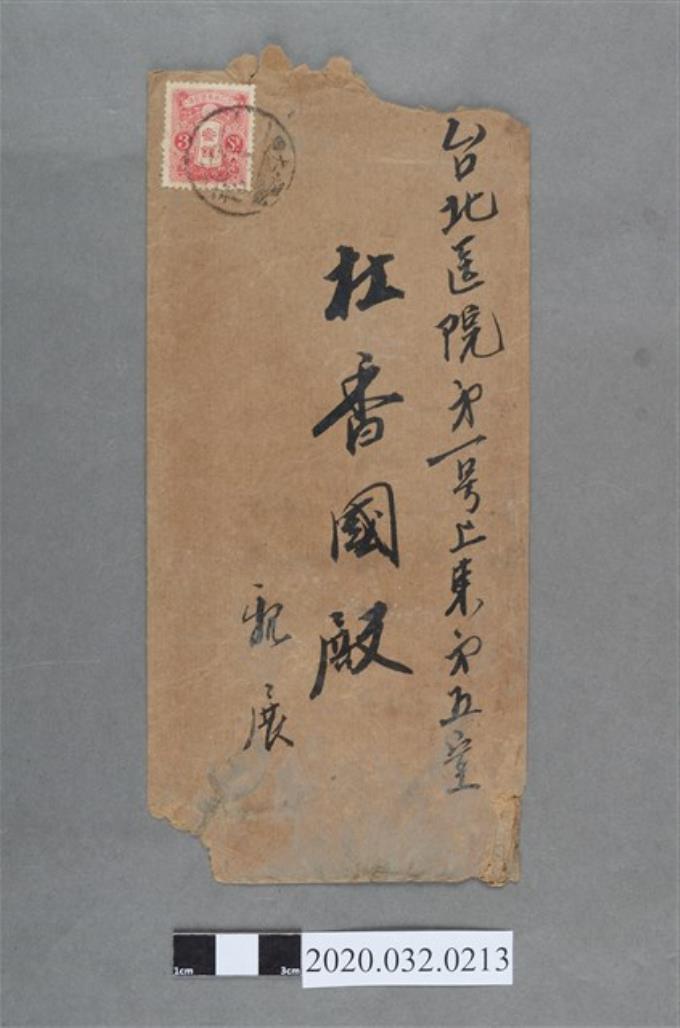 台北医院第一号上東第五室
杜香國殿
親展
3 Sn.
1cm
3cm
2020.032.0213